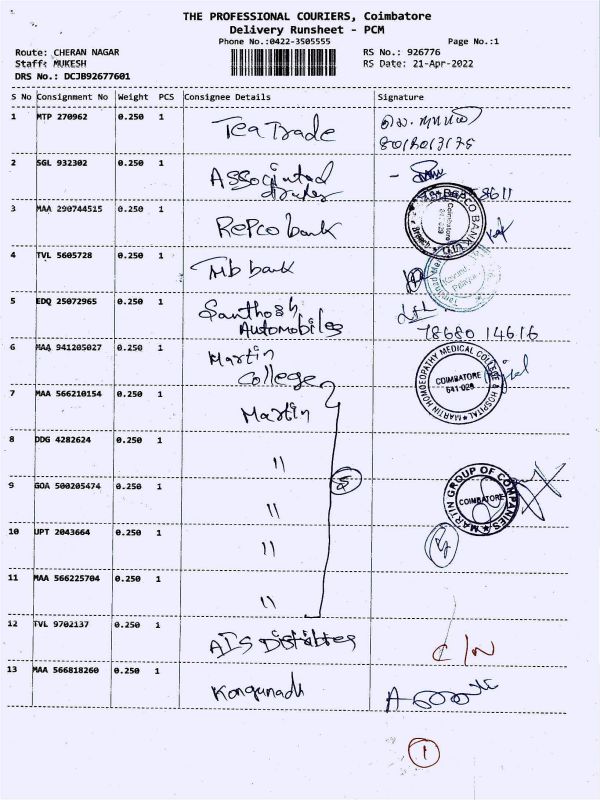 THE PROFESSIONAL COURIERS, Coimbatore
Delivery Runsheet - PCM
Phone No.:0422-3505555 Page No.:1
Route: CHERAN NAGAR RS No.: 926776
Staff: MUKESH RS Date: 21-Apr-2022
DRS No.: DCJB92677601
S No Consignment No Weight PCS Consignee Details Signature
1 MTP 270962 0.250 1 Tea Trade
2 SGL 932302 0.250 1 Associated
3 MAA 290744515 0.250 1 Repco bank
4 TVL 5605728 0.250 1 Mb bank
5 EDQ 25072965 0.250 1 Santhosh
Automobiles 78680 14616
6 MAA 941205027 0.250 1 Martin
College
MARTIN HOMOEOPATHY MEDICAL COLLEGE & HOSPITAL
COIMBATORE
641-028
7 MAA 566210154 0.250 1 Martin
8 DDG 4282624 0.250 1 "
9 GOA 500205474 0.250 1 "
MARTIN GROUP OF COMPANIES
COIMBATORE
10 UPT 2043664 0.250 1 "
11 MAA 566225704 0.250 1 "
12 TVL 9702137 0.250 1 C/N
13 MAA 566818260 0.250 1 Kongunadu
1